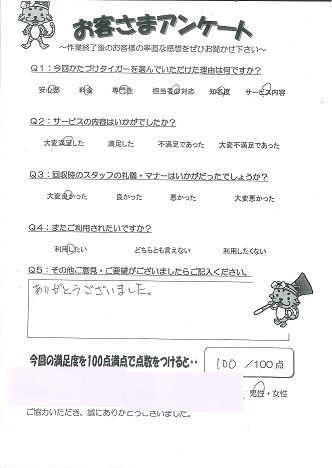 お客さまアンケート
～作業終了後のお客様の率直な感想をぜひお聞かせ下さい～
Q1：今回かたづけタイガーを選んでいただけた理由は何ですか？
安心感 料金 専門性 担当者の対応 知名度 サービス内容
Q2：サービスの内容はいかがでしたか？
大変満足した 満足した 不満足であった 大変不満足であった
Q3：回収時のスタッフの礼儀・マナーはいかがだったでしょうか？
大変良かった 良かった 悪かった 大変悪かった
Q4：またご利用されたいですか？
利用したい どちらとも言えない 利用したくない
Q5：その他ご意見・ご要望がございましたらご記入ください。
ありがとうございました。
今回の満足度を100点満点で点数をつけると・・ 100 ／100点
男性・女性
ご協力いただき、誠にありがとうございました。